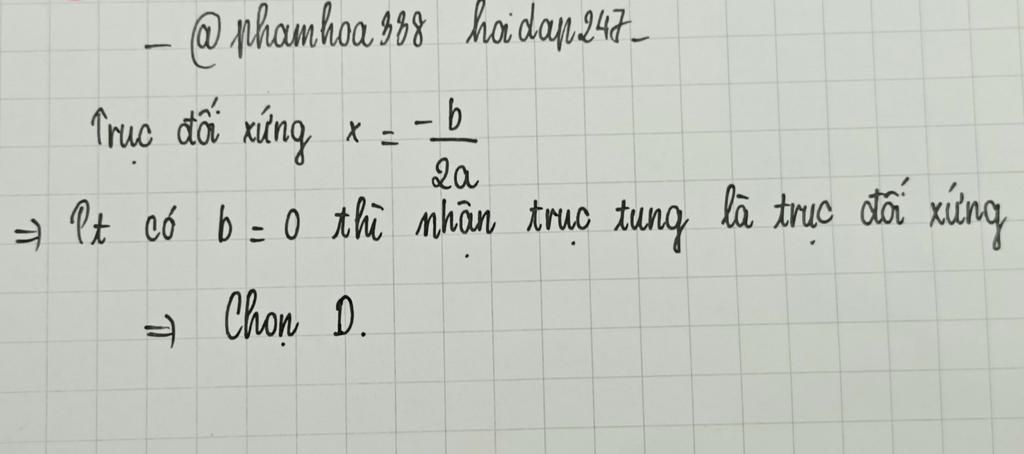 - @phamhoa338 hoidap247-
Trục đối xứng x = -b/2a
⇒ Pt có b = 0 thì nhận trục tung là trục đối xứng
⇒ Chọn D.